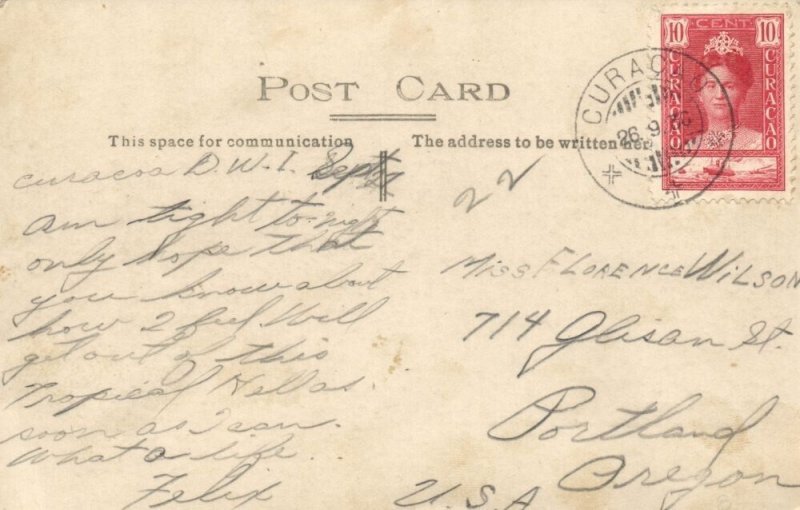 10 CENT 10
CURAÇAO CURAÇAO
CURAÇAO
26.9
POST CARD
This space for communication
The address to be written her
Curacoa D.W.I. Sept
22
Am tight to-night
only hope that
you know about
how I feel. Will
get out of this
Tropical Hellas.
soon as I can.
What a life.
Felix
MISS FLORENCE WILSON
714 Glisan St.
Portland
Oregon
U.S.A